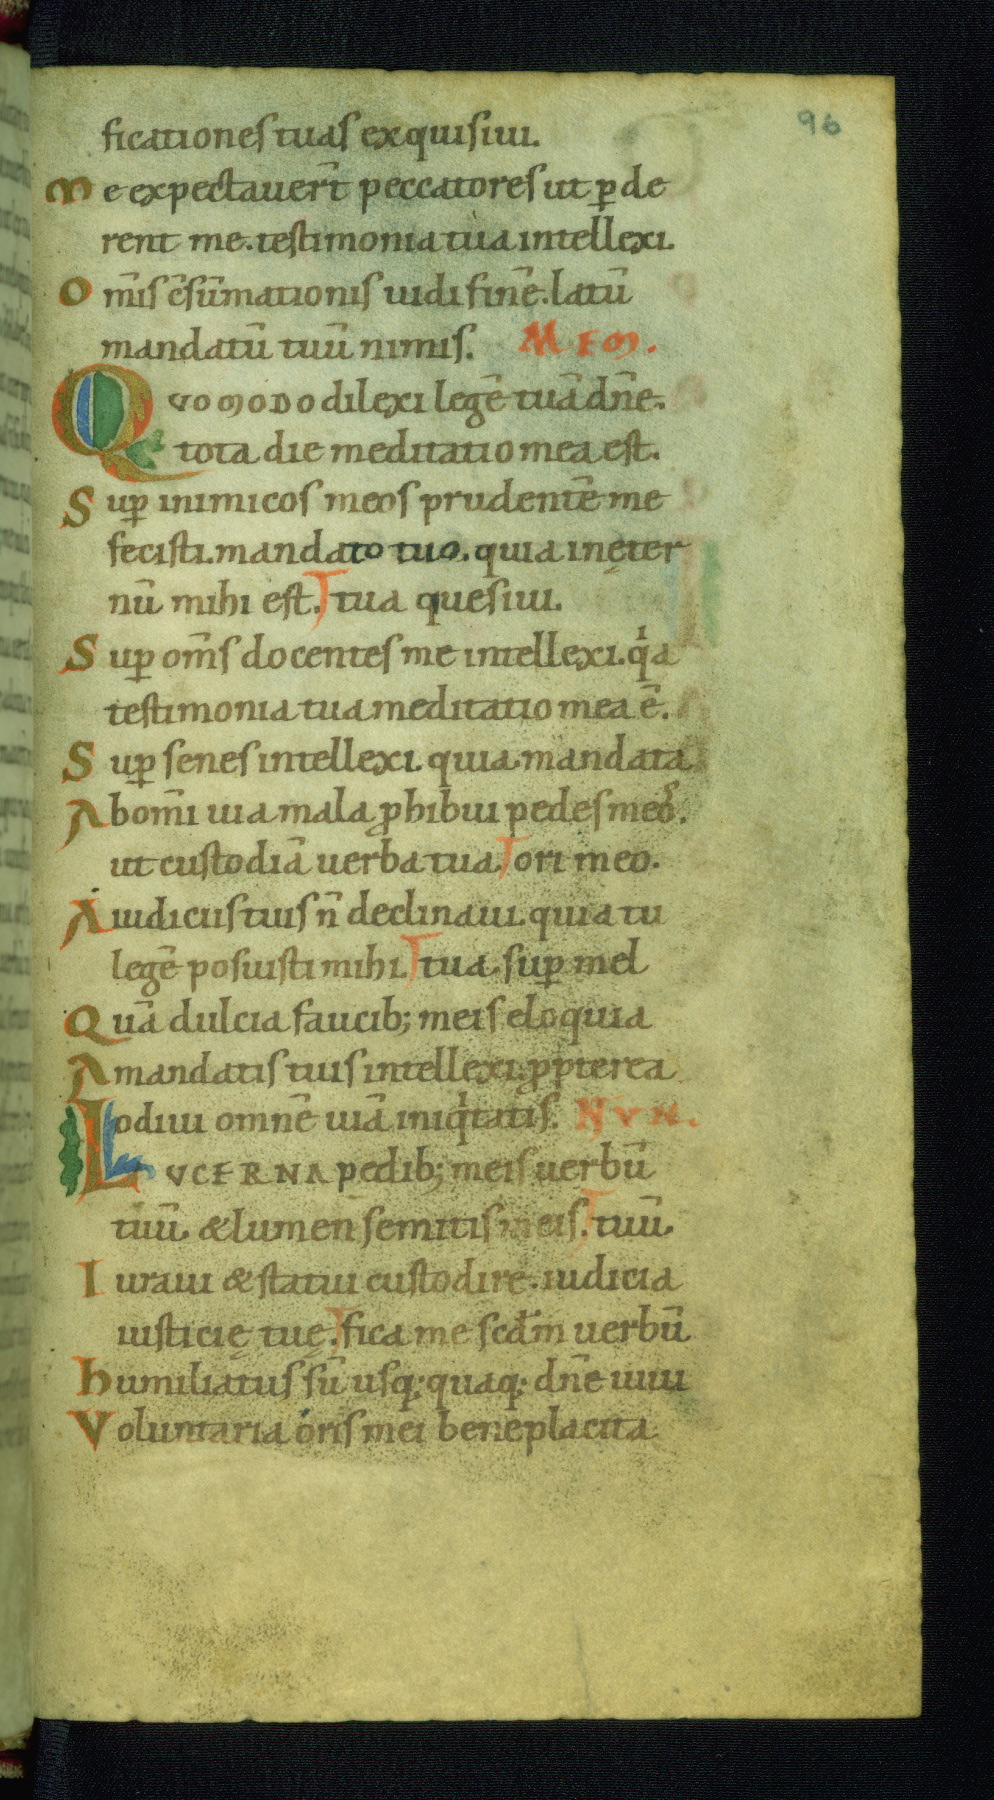 96
ficationes tuas exquisiui.
Me expectauer̄t peccatores ut ꝑde
rent me. testimonia tua intellexi.
Om̄is c̄sūmationis uidi finē. latū
mandatū tuū nimis. MEM.
QVOMODO dilexi legē tuā dn̄e.
tota die meditatio mea est.
Suꝑ inimicos meos prudentē me
fecisti. mandato tuo. quia in ęter
nū mihi est. tua quesiui.
Suꝑ om̄s docentes me intellexi. qͥa
testimonia tua meditatio mea ē.
Suꝑ senes intellexi. quia mandata
Ab om̄i uia mala ꝓhibui pedes meoˢ.
ut custodiā uerba tua. ori meo.
A iudiciis tuis n̄ declinaui. quia tu
legē posuisti mihi. tua. suꝑ mel
Quā dulcia faucib; meis eloquia
A mandatis tuis intellexi. ꝓpterea
odiui omnē uiā iniqͥtatis. NVN.
LVCERNA pedib; meis uerbū
tuū. & lumen semitis meis. tuū.
Iuraui & statui custodire. iudicia
iusticię tuę. fica me scd̄m uerbū
humiliatus sū usq; quaq; dn̄e uiui
Voluntaria oris mei beneplacita